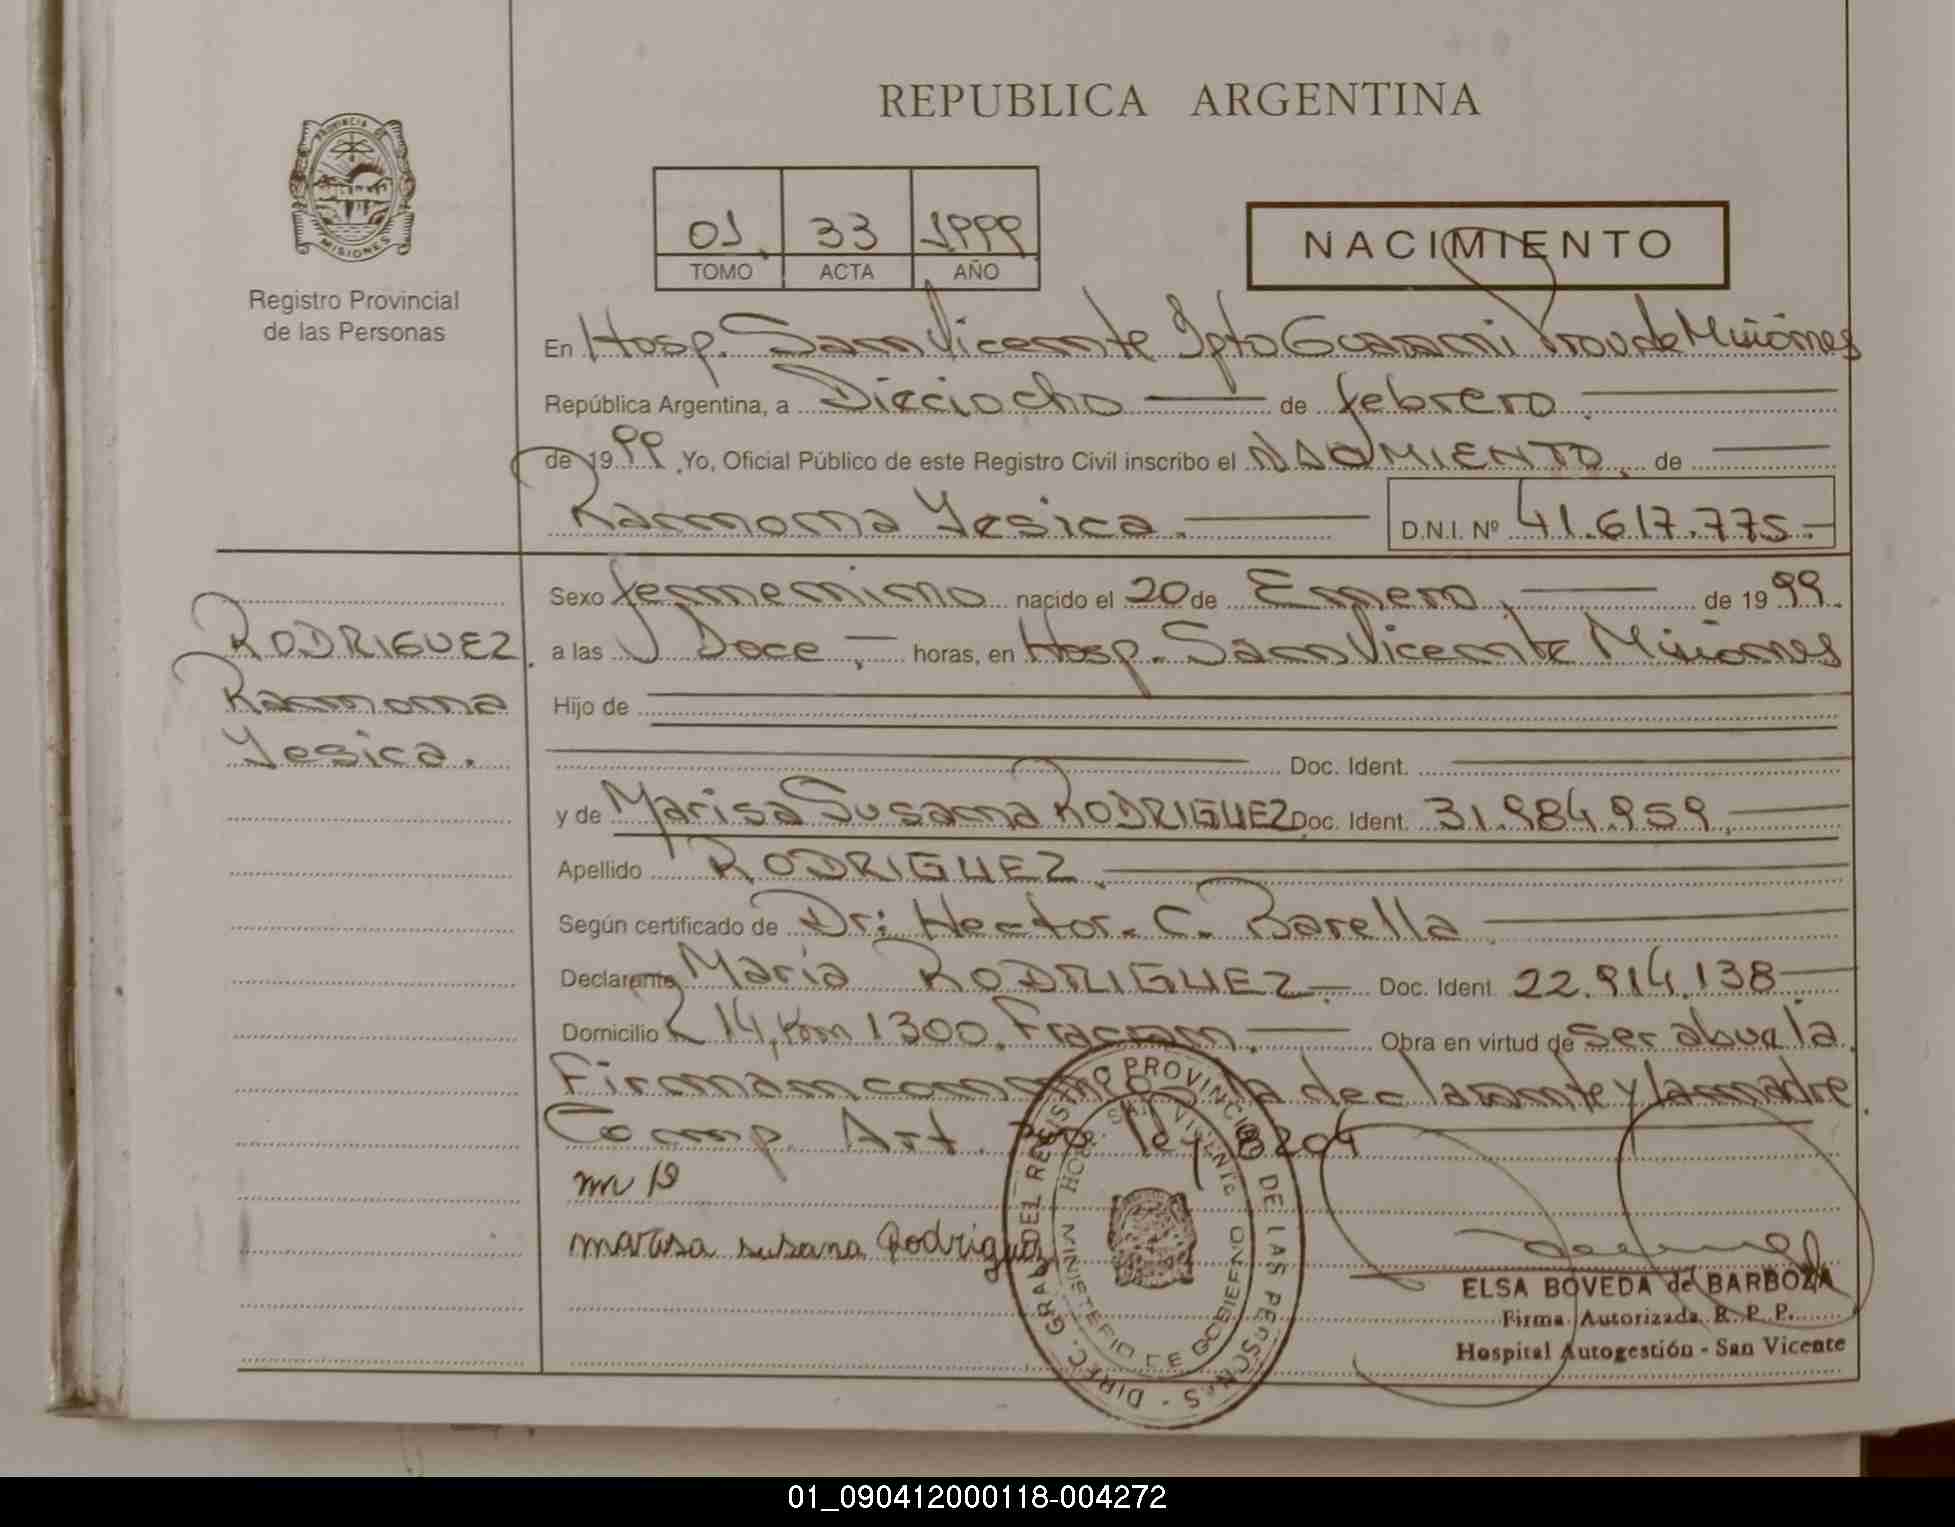 REPUBLICA ARGENTINA
PROVINCIA DE
MISIONES
Registro Provincial
de las Personas
01 33 1999
TOMO ACTA AÑO
NACIMIENTO
En Hosp. San Vicente Dpto Guarani Prov de Misiones
República Argentina, a Dieciocho de febrero
de 1999 Yo, Oficial Público de este Registro Civil inscribo el NACIMIENTO, de
Ramona Yesica. D.N.I. Nº 41.617.775.-
Sexo femenino nacido el 20 de Enero, de 1999.
RODRIGUEZ
Ramona
Yesica.
a las Doce, horas, en Hosp. San Vicente Misiones
Hijo de
Doc. Ident.
y de Marisa Susana RODRIGUEZ Doc. Ident. 31.984.959,
Apellido RODRIGUEZ.
Según certificado de Dr: Hector. C. Barella
Declarante Maria RODRIGUEZ.- Doc. Ident. 22.914.138
Domicilio R 14, Km 1300. Fracran. Obra en virtud de ser abuela.
Firman conmigo la declarante y la madre.
Comp. Art. ley 8204
m R
marisa susana Rodriguez
DIREC. GRAL DEL REGISTRO PROVINCIAL DE LAS PERSONAS
HOSP. SAN VICENTE
MINISTERIO DE GOBIERNO
ELSA BOVEDA de BARBOZA
Firma Autorizada R. P. P.
Hospital Autogestión - San Vicente
01_090412000118-004272